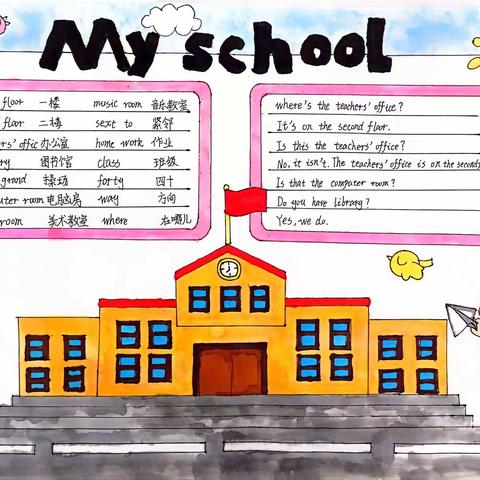 My school
floor 一楼 music room 音乐教室
floor 二楼 sext to 紧邻
ers' offic 办公室 home work 作业
ry 图书馆 class 班级
grand 操场 forty 四十
uter room 电脑房 way 方向
room 美术教室 where 在哪儿
where's the teachers' office?
It's on the second floor.
Is this the teachers' office?
No, it isn't. The teachers' office is on the second
Is that the computer room?
Do you have library?
Yes, we do.